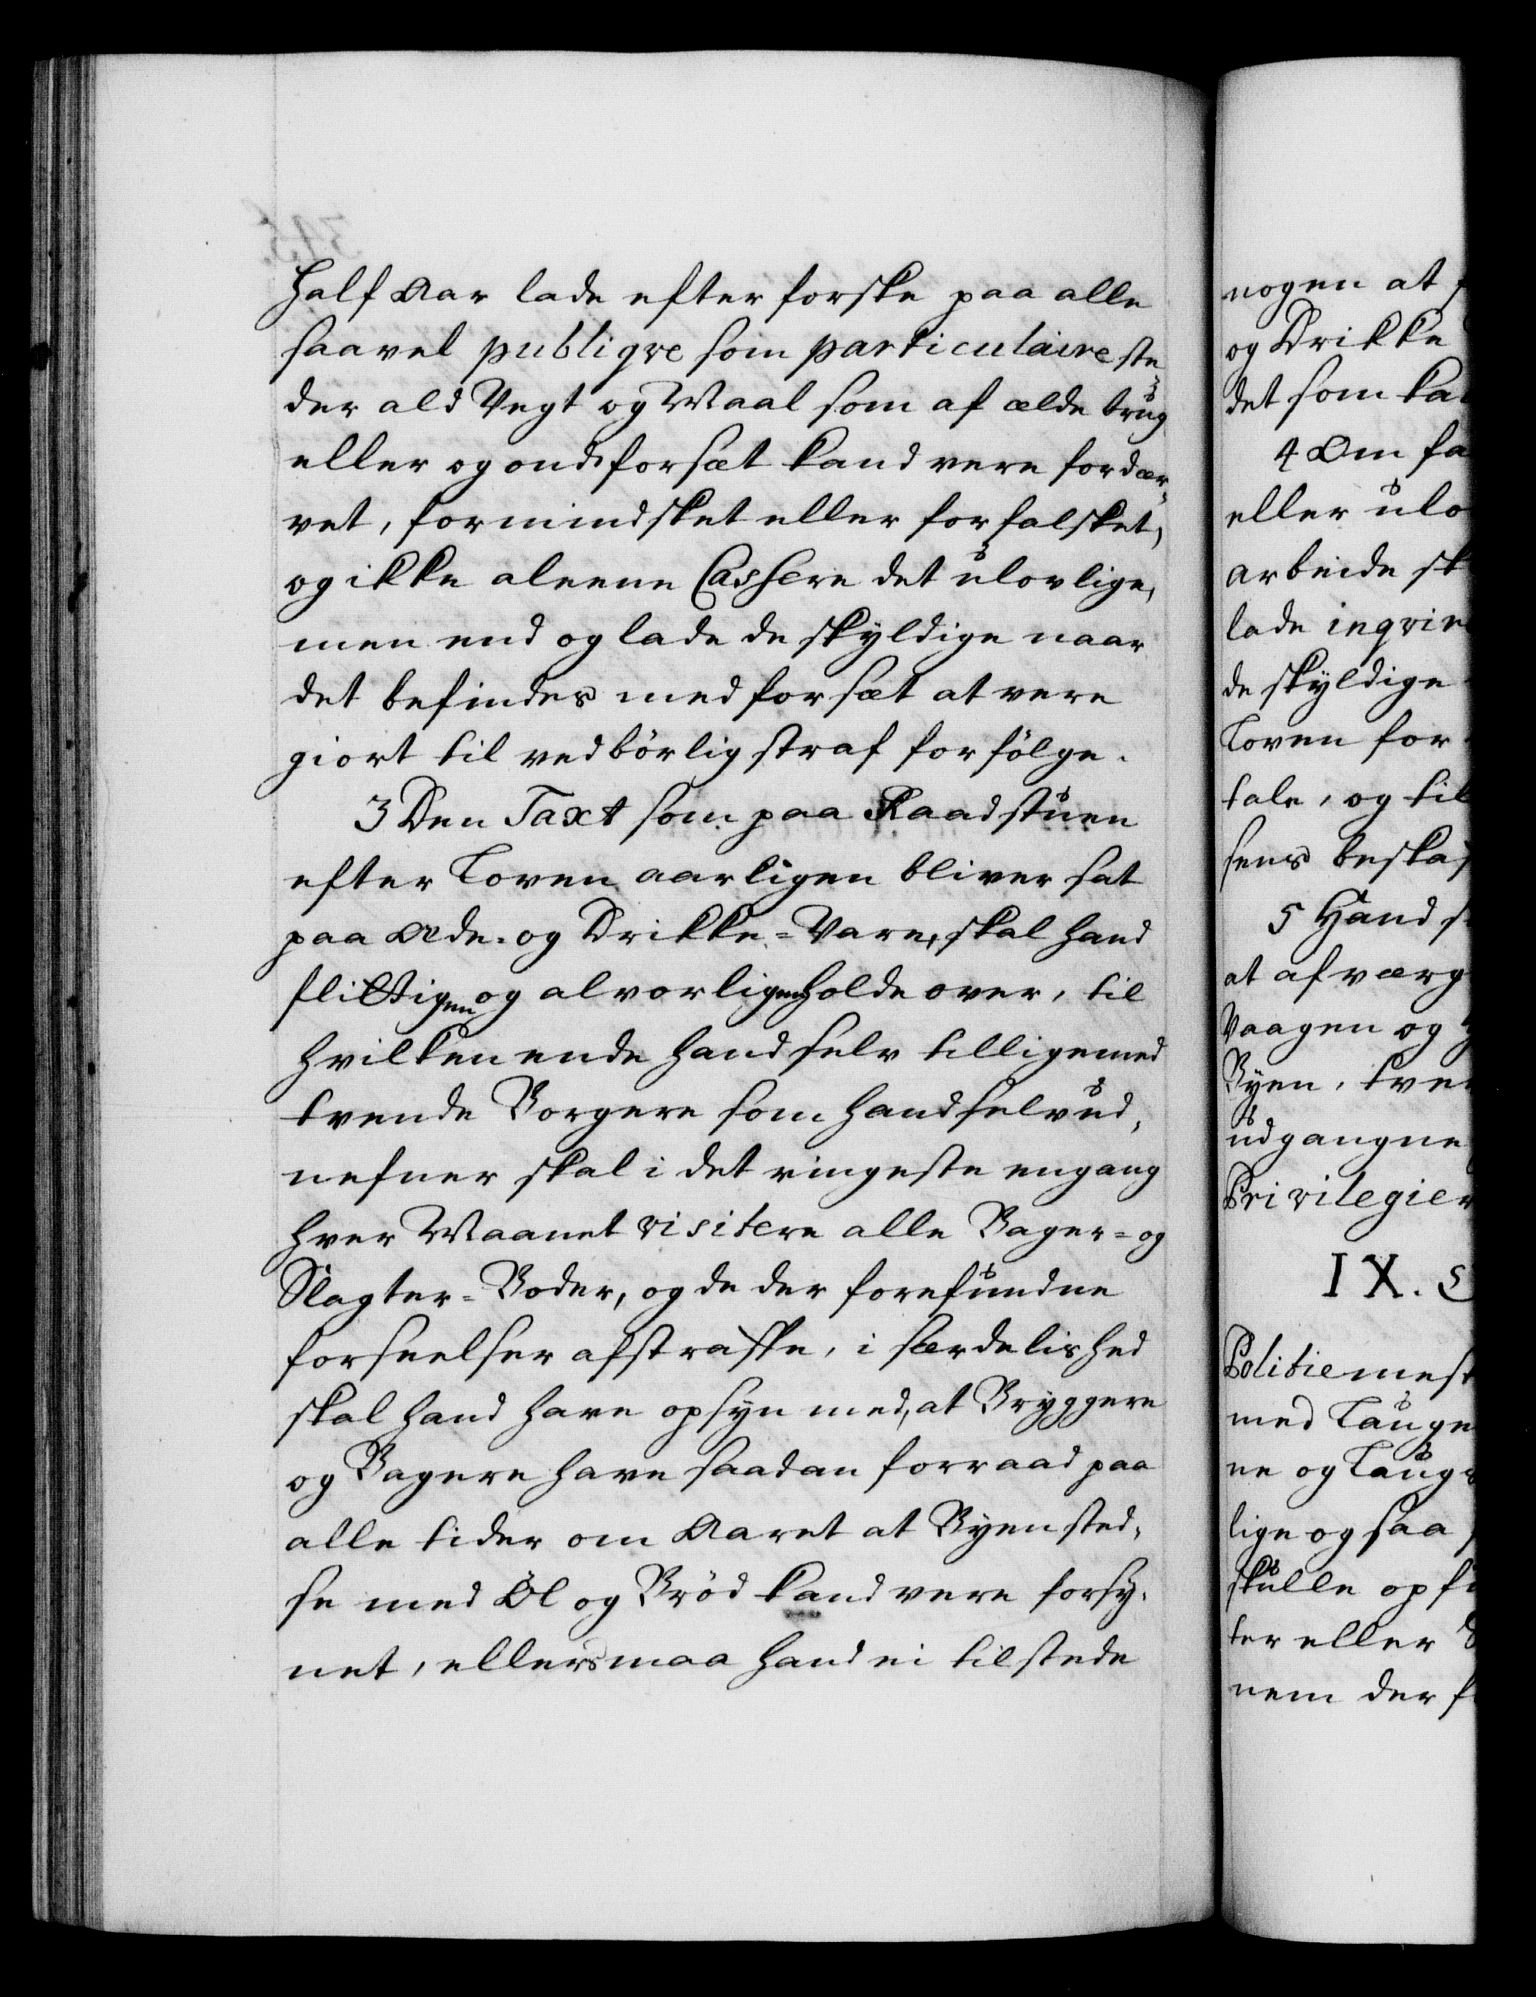 half Aar lade efter forske paa alle
saavel publiqve som particulaire ste-
der ald Vegt og Maal som af ælde brug
eller og ond forsæt kand vere fordær-
vet, formindsket eller forfalsket,
og ikke aleene Cassere det ulovlige,
men end og lade de skyldige naar
det befindes med forsæt at vere
giort til vedbörlig straf forfölge.
3 Den Taxt som paa Raadstuen
efter Loven aarligen bliver sat
paa Æde- og Drikke-Vare, skal hand
flittigen og alvorligen holde over, til
hvilken ende hand selv tilligemed
tvende Borgere som hand selv ud-
nefner skal i det ringeste engang
hver Maanet visitere alle Bager- og
Slagter-Boder, og de der forefundne
forseelser afstraffe, i særdelished
skal hand have opsyn med, at Bryggere
og Bagere have saadan forraad paa
alle tider om Aaret at Byen sted-
se med Öl og Bröd kand vere forsy-
net, ellers maa hand ei tilstede
nogen at
og Drikke
det som
4 Om
eller
arbeide
lade
de skyldige
Loven for
tale, og til
sens
5 Hand
at afværg
Vaagen og
Byen,
udgangne
Privilegier
IX.
Politiemest
med Lauge
ne og Laugs
lige og saa
skulle
ter eller
nem der